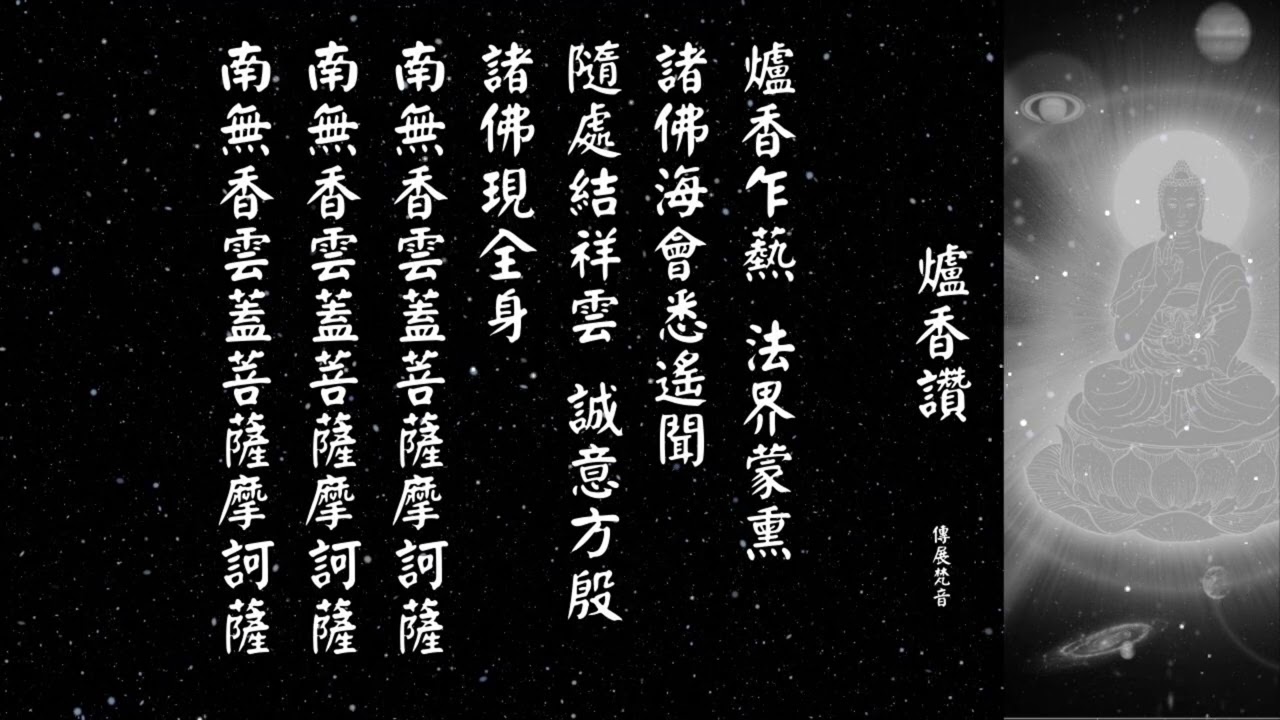 爐香讚
傳展梵音
爐香乍爇 法界蒙熏
諸佛海會悉遙聞
隨處結祥雲 誠意方殷
諸佛現全身
南無香雲蓋菩薩摩訶薩
南無香雲蓋菩薩摩訶薩
南無香雲蓋菩薩摩訶薩